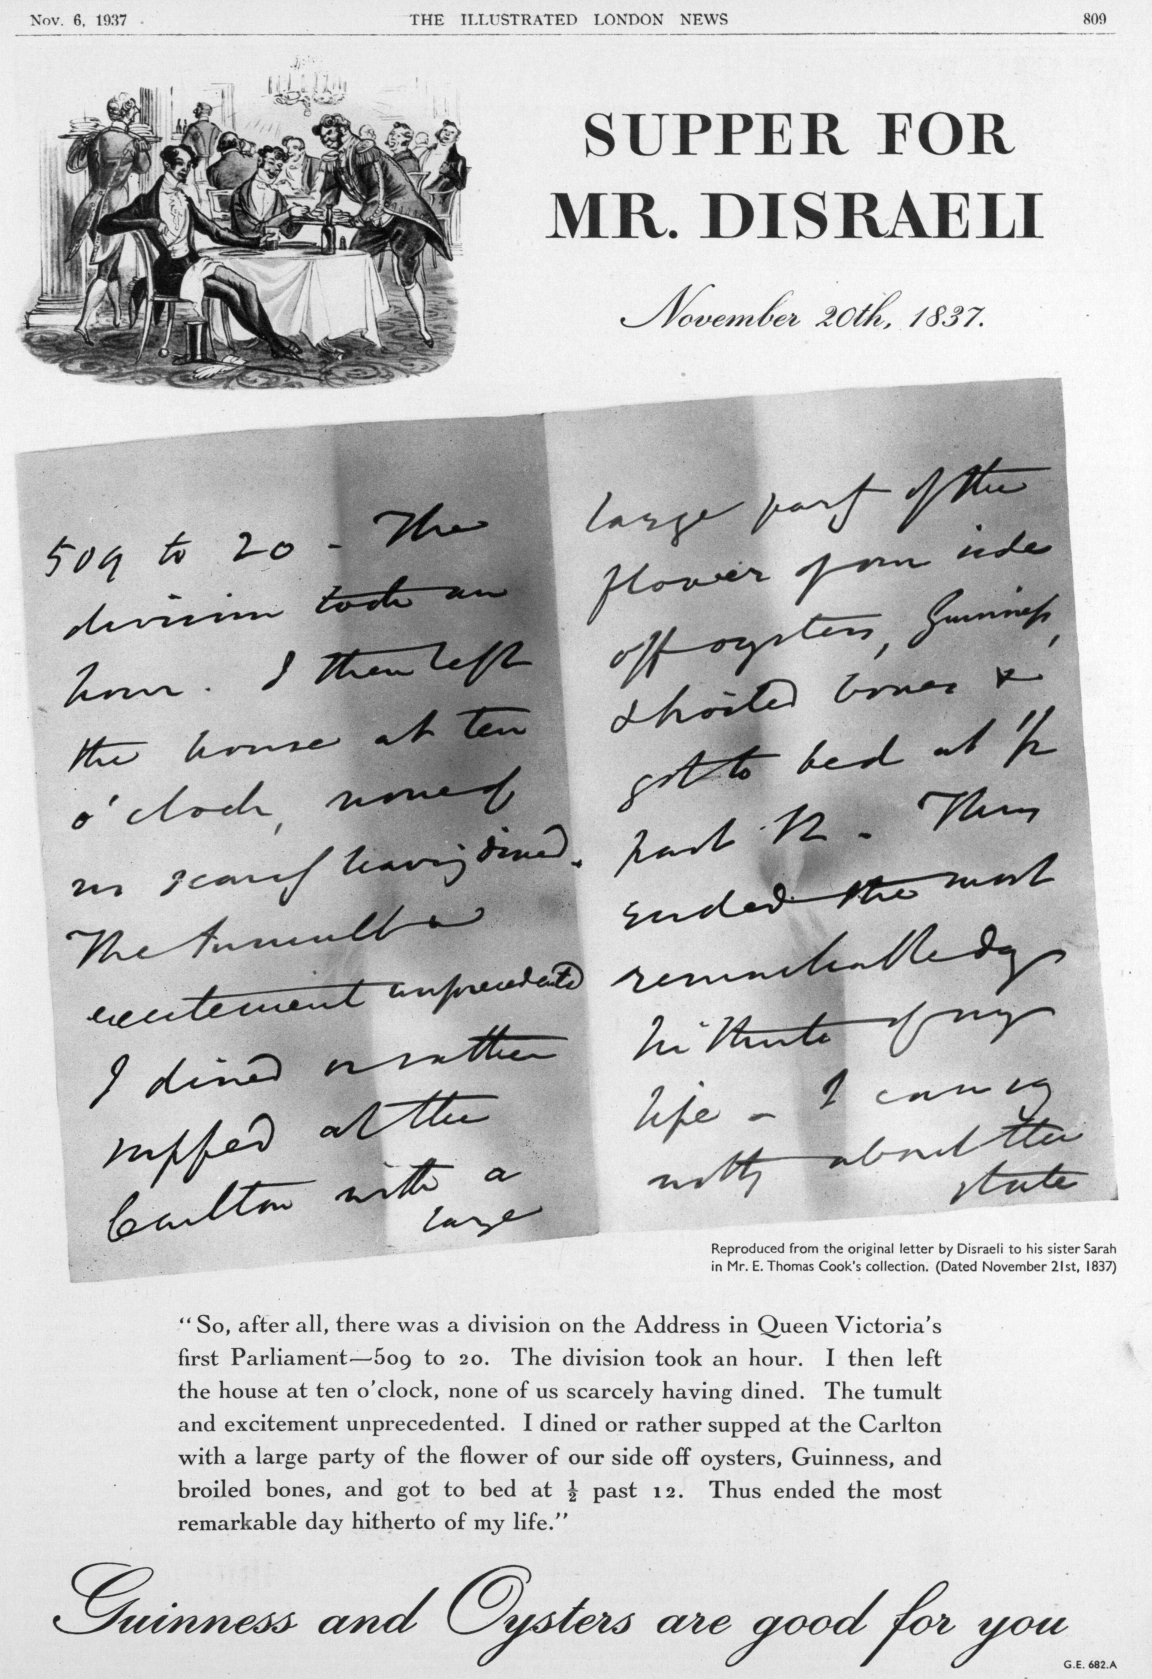 Nov. 6, 1937
THE ILLUSTRATED LONDON NEWS
809
SUPPER FOR
MR. DISRAELI
November 20th, 1837.
509 to 20 - The
division took an
hour. I then left
the house at ten
o'clock, none of
us scarcely having dined.
The tumult &
excitement unprecedented
I dined or rather
supped at the
Carlton with a
large
large party of the
flower of our side
off oysters, Guinness,
& broiled bones &
got to bed at 1/2
past 12 - Thus
ended the most
remarkable day
hitherto of my
life - I can say
nothing about the
state
Reproduced from the original letter by Disraeli to his sister Sarah
in Mr. E. Thomas Cook's collection. (Dated November 21st, 1837)
"So, after all, there was a division on the Address in Queen Victoria's
first Parliament—509 to 20. The division took an hour. I then left
the house at ten o'clock, none of us scarcely having dined. The tumult
and excitement unprecedented. I dined or rather supped at the Carlton
with a large party of the flower of our side off oysters, Guinness, and
broiled bones, and got to bed at ½ past 12. Thus ended the most
remarkable day hitherto of my life."
Guinness and Oysters are good for you
G.E. 682.A